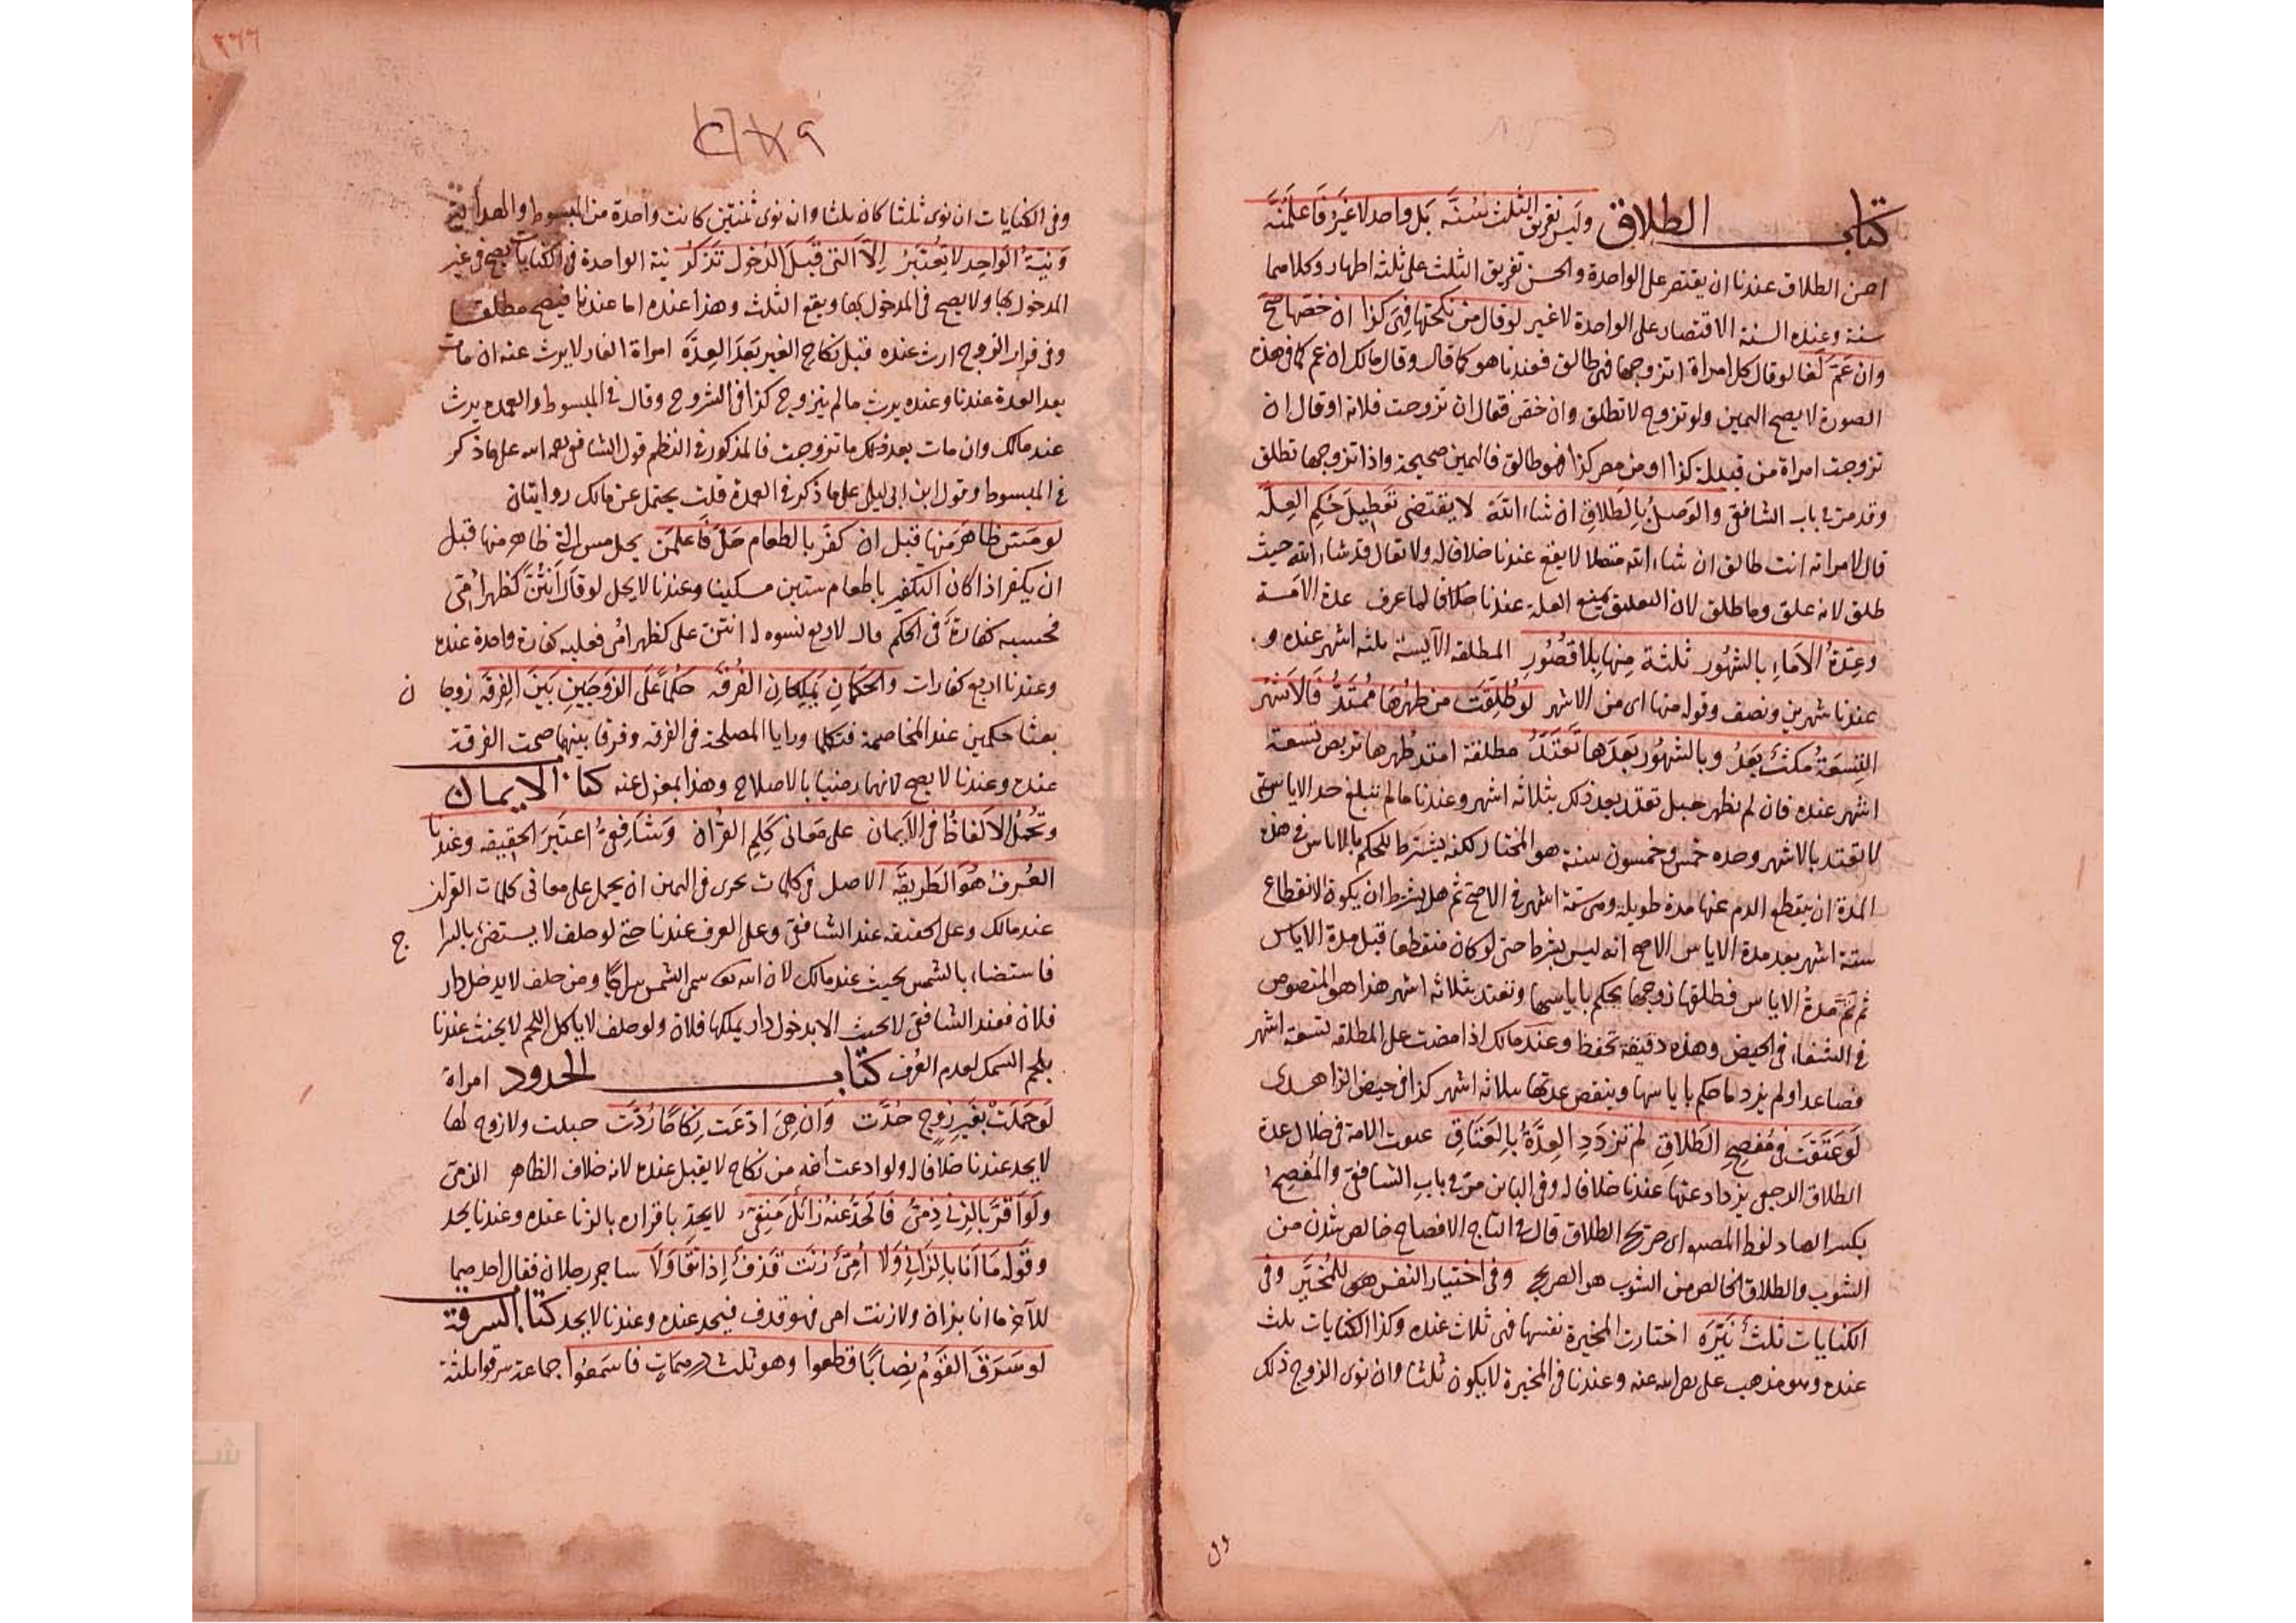 كتاب الطلاق وليس تفريق الثلث بسنّه بل واحد لا غير فاعلمنّه
احسن الطلاق عندنا ان يقتصر على الواحدة والحسن تفريق الثلث على ثلثه اطهار وكلاهما
سنة وعنده السنة الاقتصار على الواحدة لا غير لو قال من نكحتها فهي كذا ان خصّها صحّ
وان عمّ لغا لو قال كل امراة اتزوجها فهي طالق فعندنا هو كما قال وقال مالك ان عم كما في هذه
الصورة لا يصح اليمين ولو تزوج لا تطلق وان خص فقال ان تزوجت فلانة او قال ان
تزوجت امراة من قبيلة كذا او من مصر كذا فهو طالق فاليمين صحيحة واذا تزوجها تطلق
وقد مر في باب الشافعي والوصل بالطلاق ان شاء الله لا يقتضي تعطيل حكم العلّه
قال لامراته انت طالق ان شاء الله متصلا لا يقع عندنا خلافا له ولا تقال قد شاء الله حيث
طلق لانه علق وما طلق لان التعليق يمنع العلة عندنا خلافا لما عرف عدة الامة
وعدة الاماء بالشهور ثلثة منها بلا قصور المطلقه الآيسة ثلثه اشهر عنده و
عندنا شهرين ونصف وقوله منها اى من الاشهر لو طلقت من طهرها ممتدّ فالاشهر
التسعة مكث بعد وبالشهور بعدها تعتدّ مطلقة امتد طهرها تربص تسعة
اشهر عنده فان لم تظهر حبل تعتد بعد ذلك بثلاثه اشهر وعندنا ما لم تبلغ حد الاياس
لا تعتد بالاشهر وحده خمس وخمسون سنة هو المختار لكنه يشترط للحكم بالاياس في هذه
المدة ان ينقطع الدم عنها مدة طويلة وهي ستة اشهر في الاصح ثم هل يشترط ان يكون الانقطاع
ستة اشهر بعد مدة الاياس الاصح انه ليس بشرط حتى لو كان منقطعا قبل مدة الاياس
ثم تم مدة الاياس فطلقها زوجها يحكم باياسها وتعتد بثلاثه اشهر هذا هو المنصوص
في الشفاء في الحيض وهذه دقيقة تحفظ وعند مالك اذا مضت على المطلقه تسعة اشهر
فصاعدا ولم تر دما حكم باياسها وينقض عدتها بثلاثه اشهر كذا في حيض الزاهدى
لو عتقت في مفصح الطلاق لم تزدد العدّة بالعتاق عتقت الامة في خلال عدة
الطلاق الرجعي يزداد عدتها عندنا خلافا له وفي البائن مر في باب الشافعي والمفصح
بكسر الصاد لفظ المصنف اى صريح الطلاق قال في التاج الافصاح خالص شدن من
الشوب والطلاق الخالص من الشوب هو الصريح وفي اختيار النفس هو للمخيّر وفي
الكنايات ثلث نيّره اختارت المخيرة نفسها فهي ثلاث عنده وكذا الكنايات ثلث
عنده وهو مذهب على رضى الله عنه وعندنا في المخيرة لا يكون ثلثا وان نوى الزوج ذلك
ول
٢٦٦
وفي الكنايات ان نوى ثلثا كان ثلثا وان نوى ثنتين كانت واحدة من المبسوط
ونية الواحد لا تعتبر الا التي قبل الدخول تذكر نية الواحدة في الكنايات يصح في غير
المدخول بها ولا يصح في المدخول بها ويقع الثلث وهذا عنده اما عندنا فيصح مطلقا
وفي فرار الزوج ارث عنده قبل نكاح الغير بعد العدّه امراة الفار لا يرث عنه ان مات
بعد العدة عندنا وعنده يرث ما لم يتزوج كذا في الشروح وقال في المبسوط والعمده يرث
عند مالك وان مات بعد ذلك ما تزوجت فالمذكور في النظم قول الشافعي رحمه الله على ما ذكر
في المبسوط وقول ابن ابي ليلى على ما ذكر في العمدة قلت يحتمل عن مالك روايتان
لو مسّ من ظاهر منها قبل ان كفّر بالطعام حلّ فاعلمن يحل مس التي ظاهر منها قبل
ان يكفر اذا كان التكفير باطعام ستين مسكينا وعندنا لا يحل لو قال انتنّ كظهر امّي
فحسبه كفارة في الحكم قال لاربع نسوه له انتن على كظهر امي فعليه كفارة واحدة عنده
وعندنا اربع كفارات والحكمان يملكان الفرقه حكما على الزوجين بين الفرقه زوجا ن
بعثا حكمين عند المخاصمة فتكلما ورايا المصلحة في الفرقه وفرقا بينهما صحت الفرقة
عنده وعندنا لا يصح لانهما رضيا بالاصلاح وهذا بمعزل عنه كتاب الايمان
وتحمل الالفاظ في الايمان على معاني كلم القرآن وشافعيّ اعتبر الحقيقه وعندنا
العرف هو الطريقه الاصل في كلمات تجرى في اليمين ان يحمل على معانى كلمات القرآن
عند مالك وعلى الحقيقه عند الشافعي وعلى العرف عندنا حتى لو حلف لا يستضئ بالسرا ج
فاستضاء بالشمس يحنث عند مالك لان الله تعالى سمى الشمس سراجا ومن حلف لا يدخل دار
فلان فعند الشافعي لا يحنث الا بدخول دار يملكها فلان ولو حلف لا ياكل اللحم لا يحنث عندنا
بلحم السمك لعدم العرف كتاب الحدود امراة
لو حملت بغير زوج حدّت وان هي ادّعت نكاحا ردّت حبلت ولا زوج لها
لا يحد عندنا خلافا له ولو ادعت انه من نكاح لا يقبل عنده لانه خلاف الظاهر الذمي
ولو اقرّ بالزنى ذمّى فالحدّ عنه زائل منفيّ لا يحد باقراره بالزنا عنده وعندنا يحد
وقوله ما انا بالزانى ولا امّي زنت قذف اذا تقاولا تشاجر رجلان فقال احدهما
للآخر ما انا بزان ولا زنت امي فهو قذف فيحد عنده وعندنا لا يحد كتاب السرقة
لو سرق القوم نصابا قطعوا وهو ثلث درهمات فاسمعوا جماعة سرقوا ثلثة